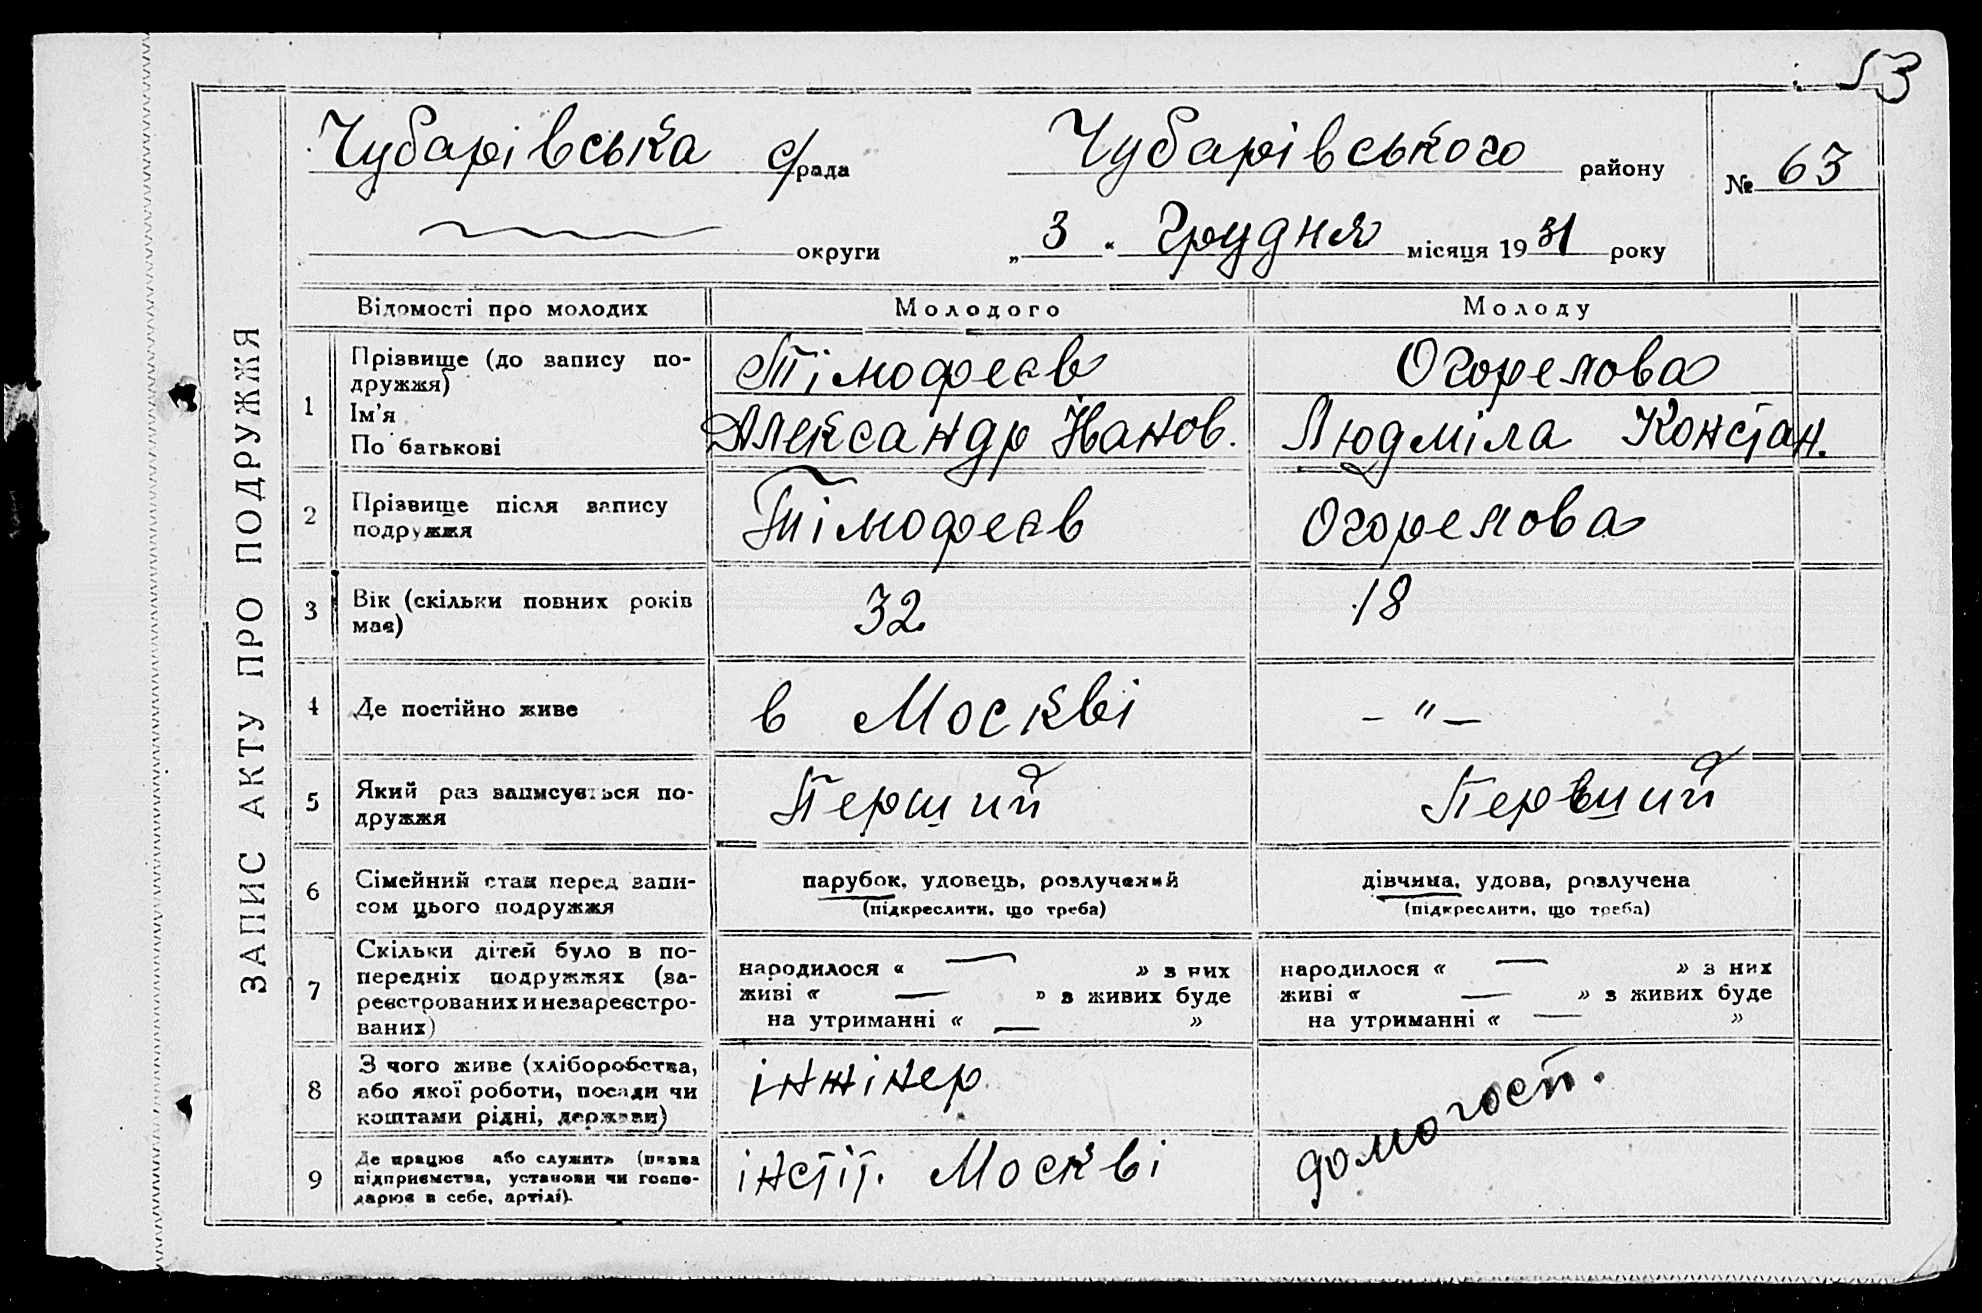 53
ЗАПИС АКТУ ПРО ПОДРУЖЖЯ
Чубарівська с/рада Чубарівського району № 63
округи „3“ Грудня місяця 1931 року
Відомості про молодих Молодого Молоду
1 Прізвище (до запису по-
дружжя) Тімофеєв Огорелова
Ім'я
По батькові Александр Іванов. Людміла Констан.
2 Прізвище після запису
подружжя Тімофеєв Огорелова
3 Вік (скільки повних років
має) 32 18
4 Де постійно живе в Москві – " –
5 Який раз записується по-
дружжя Перший Первший
6 Сімейний стан перед запи-
сом цього подружжя парубок, удовець, розлучений дівчина, удова, розлучена
(підкреслити, що треба) (підкреслити, що треба)
7 Скільки дітей було в по-
передніх подружжях (за-
реєстрованих и незареєстро-
ваних)
народилося « — » з них народилося « — » з них
живі « — » з живих буде живі « — » з живих буде
на утриманні « — » на утриманні « — »
8 З чого живе (хліборобства,
або якої роботи, посади чи
коштами рідні, держави) інжінер домогосп.
9 Де працює або служить (назва
підприємства, установи чи госпо-
дарює в себе, артілі). інстіт. Москві